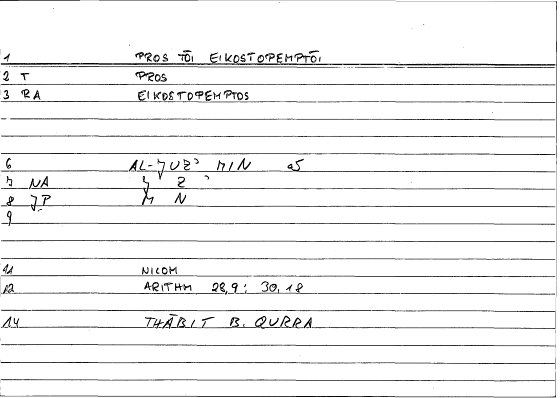 1 PROS TŌI EIKOSTOPEMPTŌI
2 T PROS
3 RA EIKOSTOPEMPTOS
6 AL-ȷUZʾ MIN
7 NA ȷ Z ʾ
8 ȷP M N
9
11 NICOM
12 ARITHM 28,9; 30,18
14 THĀBIT B. QURRA